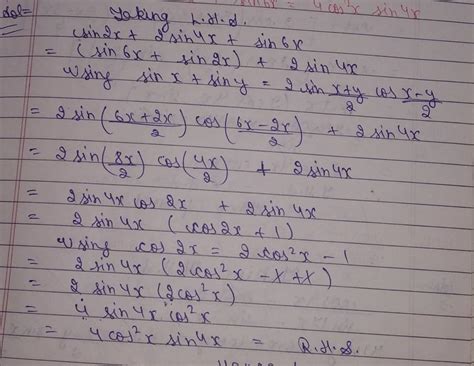 = 4cos²x sin4x
Sol= Taking L.H.S.
sin2x + 2sin4x + sin6x
= (sin6x + sin2x) + 2sin4x
Using sinx + siny = 2sin x+y/2 cos x-y/2
= 2sin(6x+2x/2) cos(6x-2x/2) + 2sin4x
= 2sin(8x/2) cos(4x/2) + 2sin4x
= 2sin4x cos2x + 2sin4x
= 2sin4x (cos2x + 1)
Using cos2x = 2cos²x - 1
= 2sin4x (2cos²x - 1 + 1)
= 2sin4x (2cos²x)
= 4 sin4x cos²x
= 4cos²x sin4x = R.H.S.